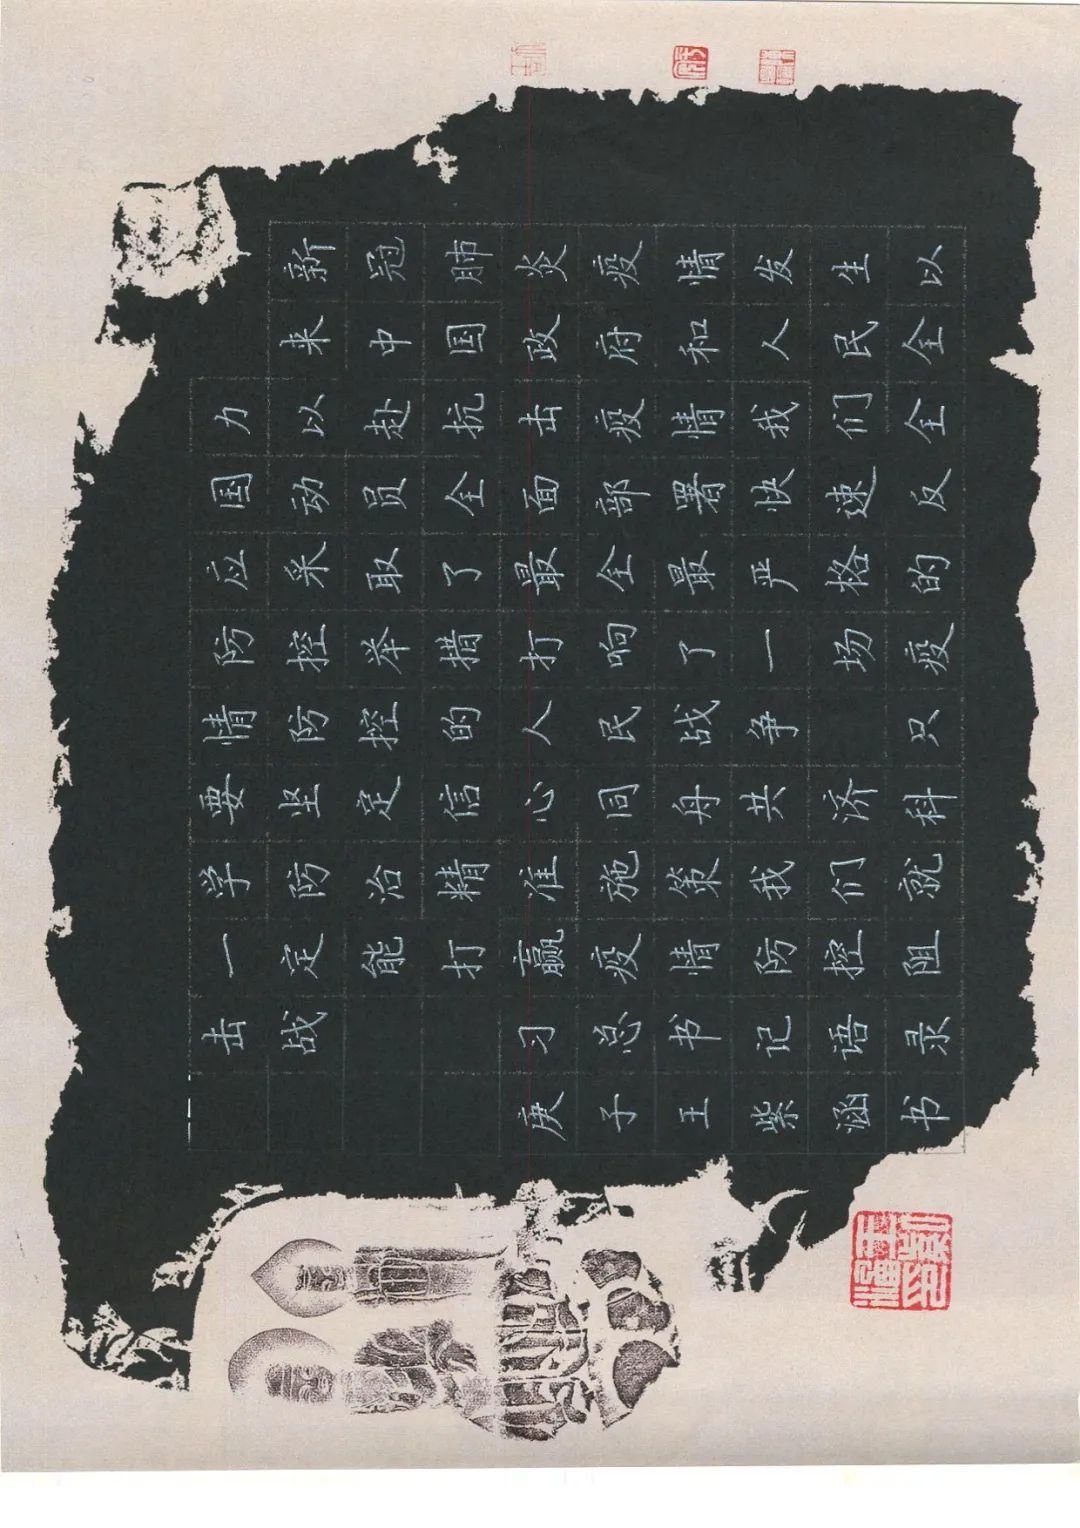 新冠肺炎疫情发生以
来中国政府和人民全
力以赴抗击疫情我们全
国动员全面部署快速反
应采取了最全最严格的
防控举措打响了一场疫
情防控的人民战争 只
要坚定信心同舟共济科
学防治精准施策我们就
一定能打赢疫情防控阻
击战 习总书记语录
庚子王紫涵书
王紫涵印